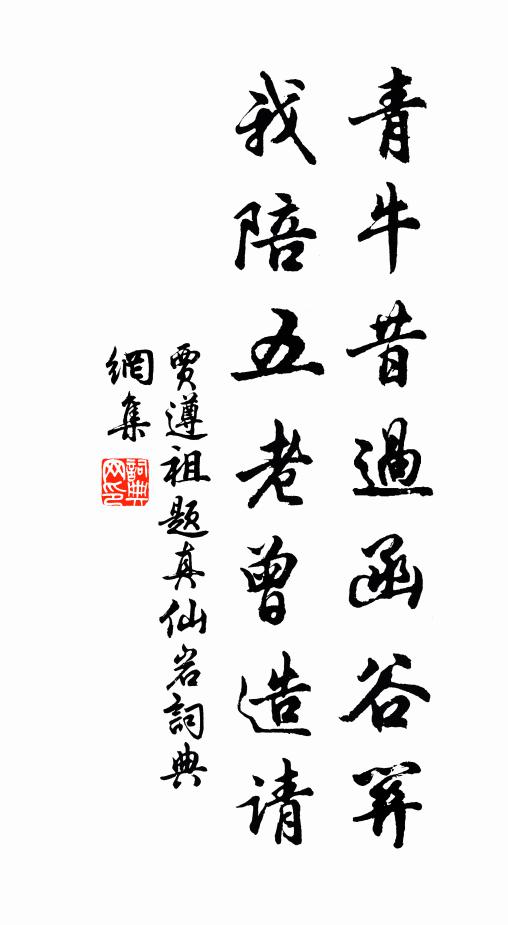 青牛昔過函谷關
我陪五老曾造请
賈遵祖题真仙岩詞典
網集
詞典网印